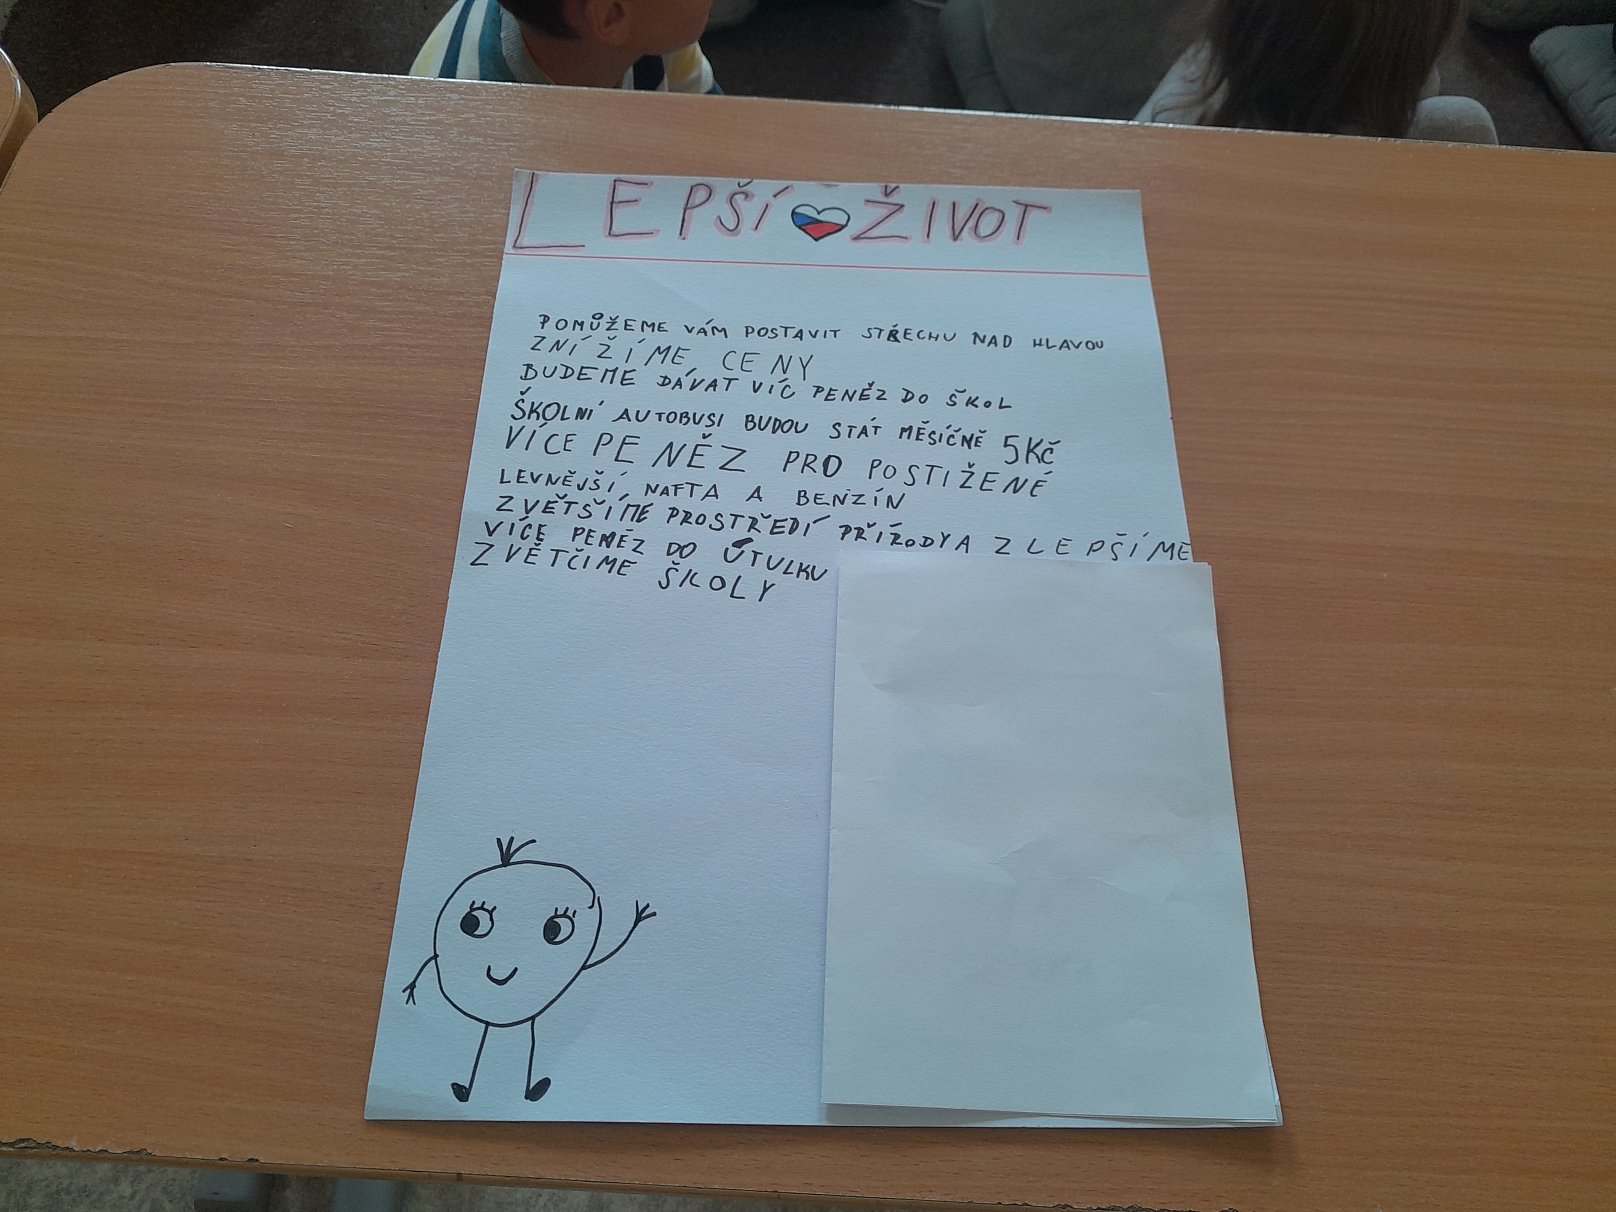 LEPŠÍ ŽIVOT
POMŮŽEME VÁM POSTAVIT STŘECHU NAD HLAVOU
ZNÍŽÍME CENY
BUDEME DÁVAT VÍC PENĚZ DO ŠKOL
ŠKOLNÍ AUTOBUSI BUDOU STÁT MĚSÍČNĚ 5KČ
VÍCE PENĚZ PRO POSTIŽENÉ
LEVNĚJŠÍ NAFTA A BENZÍN
ZVĚTŠÍME PROSTŘEDÍ PŘÍRODY A ZLEPŠÍME
VÍCE PENĚZ DO ÚTULKU
ZVĚTČÍME ŠKOLY